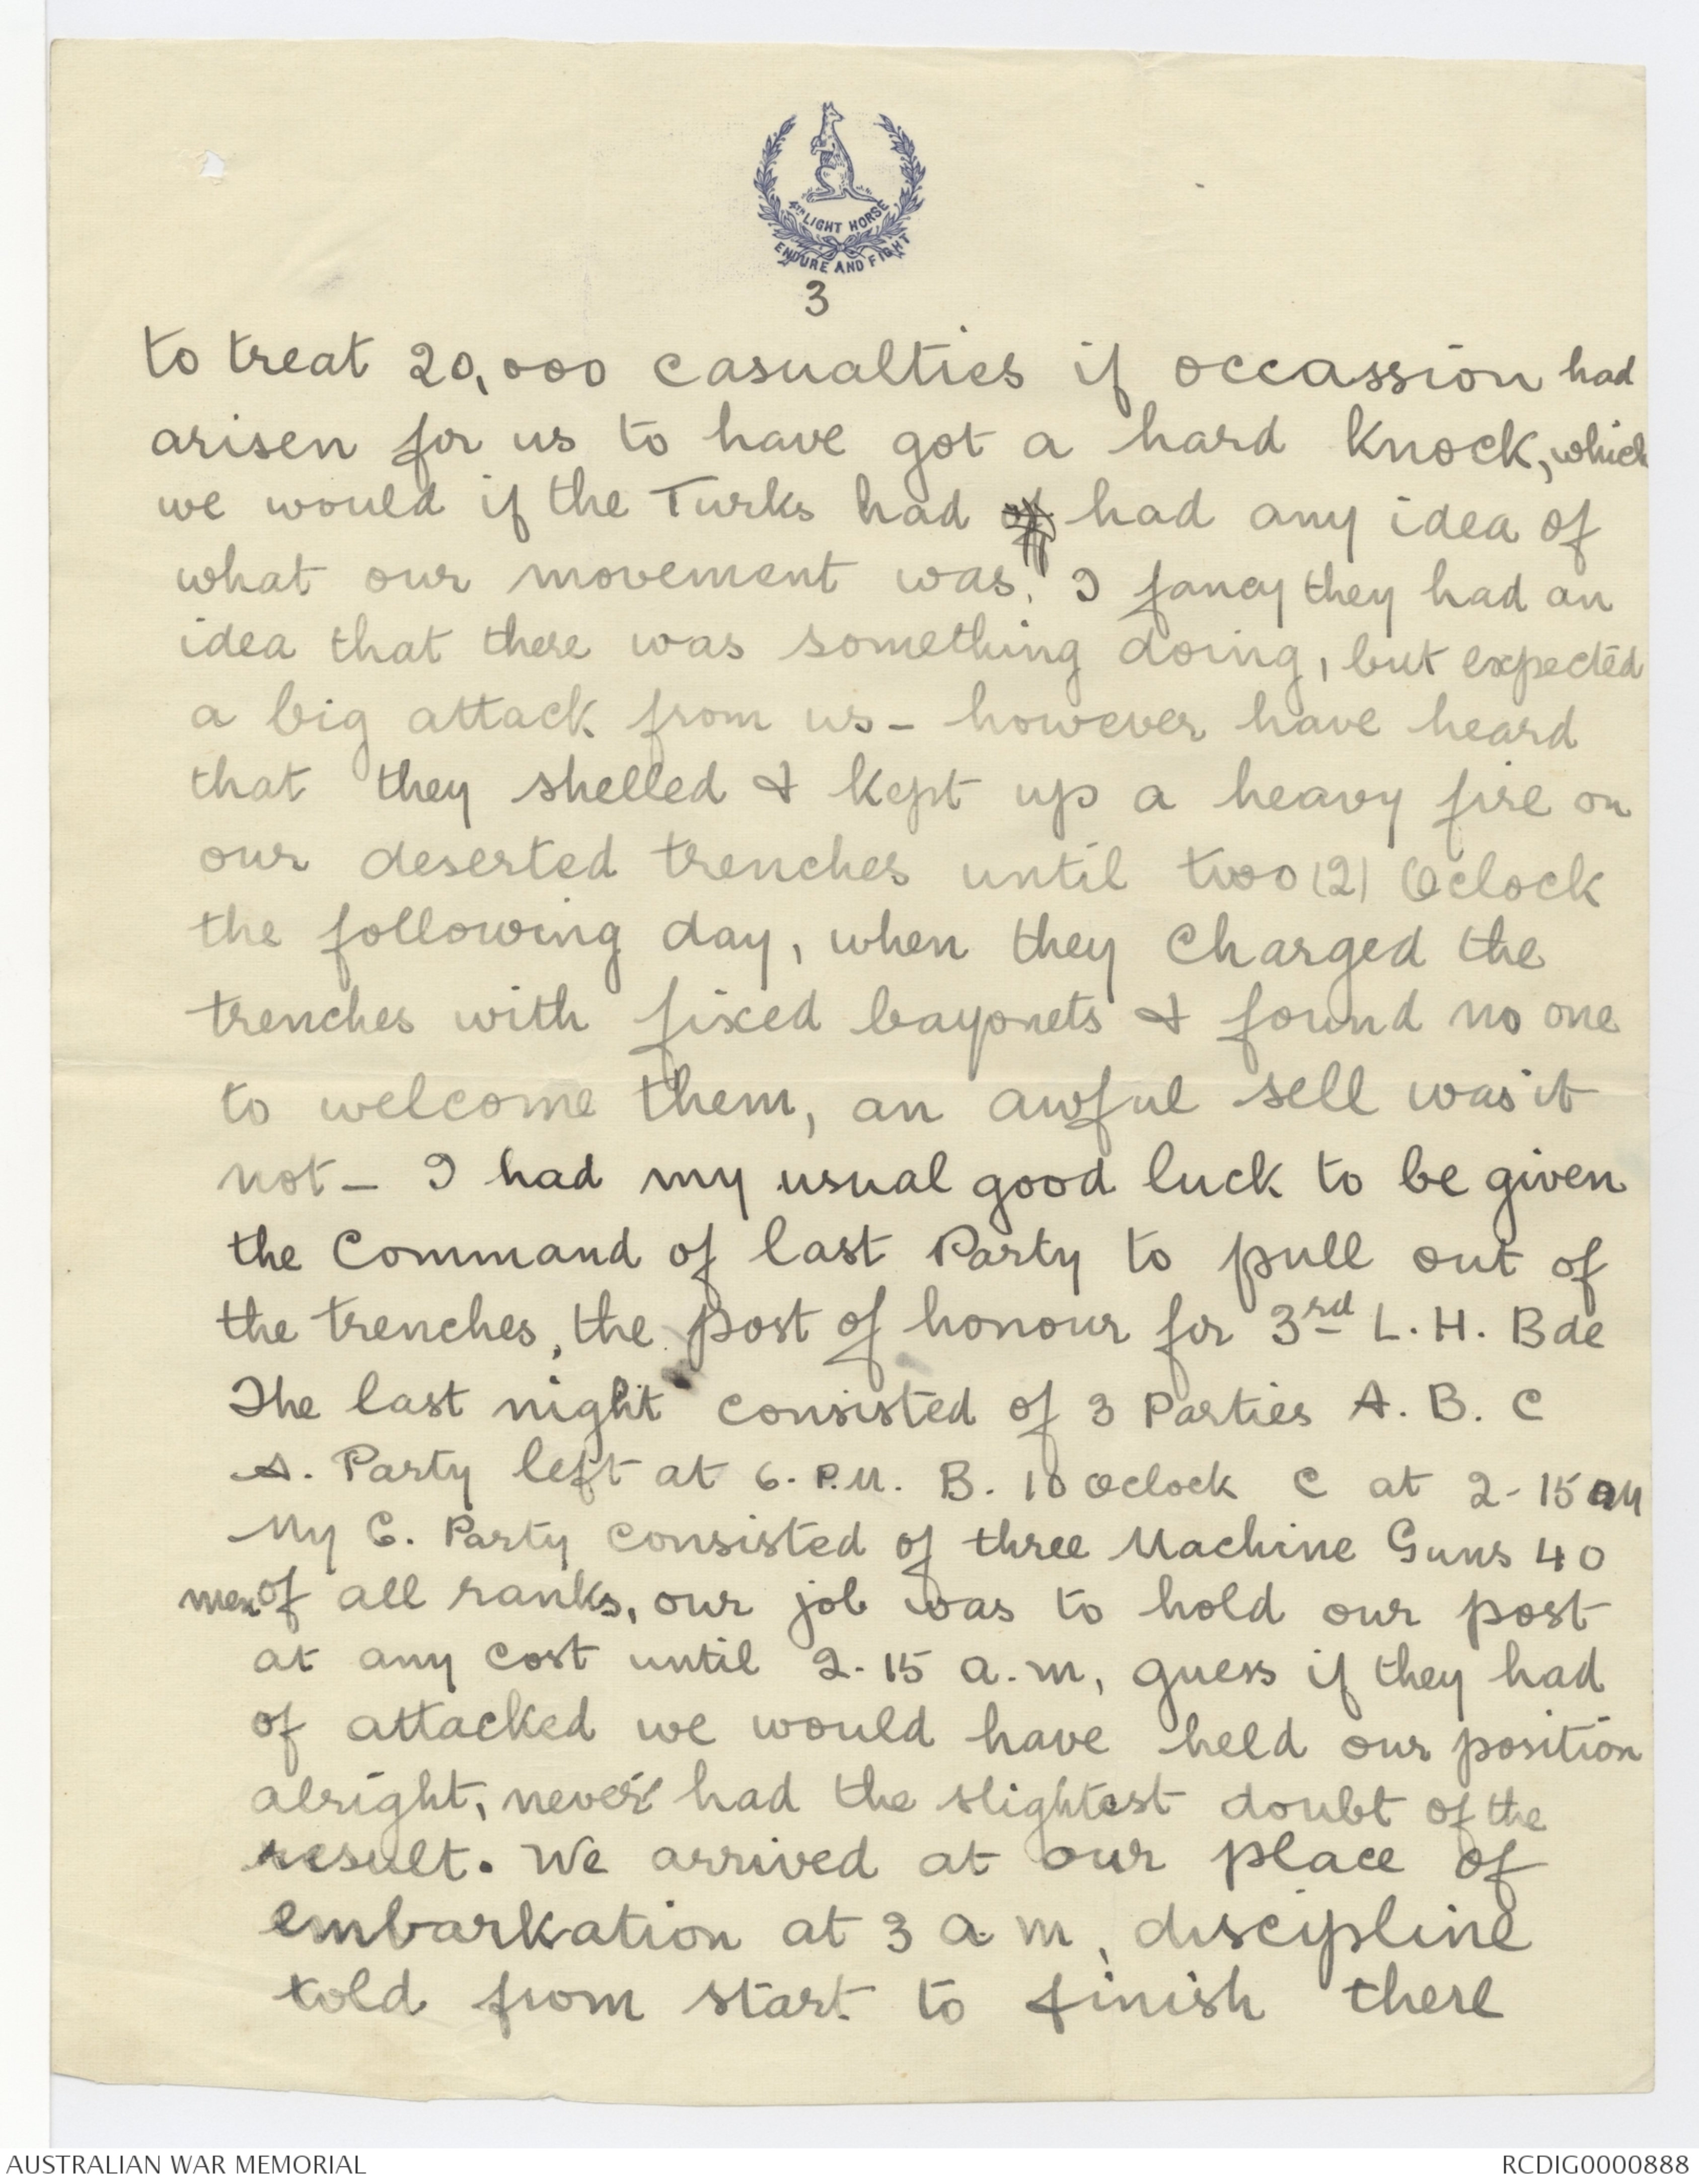 4TH LIGHT HORSE
ENDURE AND FIGHT
3
to treat 20,000 casualties if occassion had
arisen for us to have got a hard knock, which
we would if the Turks had of had any idea of
what our movement was, I fancy they had an
idea that there was something doing, but expected
a big attack from us - however have heard
that they shelled & kept up a heavy fire on
our deserted trenches until two (2) Oclock
the following day, when they charged the
trenches with fixed bayonets & found no one
to welcome them, an awful sell was it
not - I had my usual good luck to be given
the Command of last Party to pull out of
the trenches, the post of honour for 3rd L. H. Bde
The last night consisted of 3 Parties A. B. C
A. Party left at 6. P.M. B. 10 Oclock C at 2-15 am
My C. Party consisted of three Machine Guns 40
men of all ranks, our job was to hold our post
at any cost until 2.15 a.m, guess if they had
of attacked we would have held our position
alright, never had the slightest doubt of the
result. We arrived at our place of
embarkation at 3 a.m, discipline
told from start to finish there
AUSTRALIAN WAR MEMORIAL
RCDIG0000888